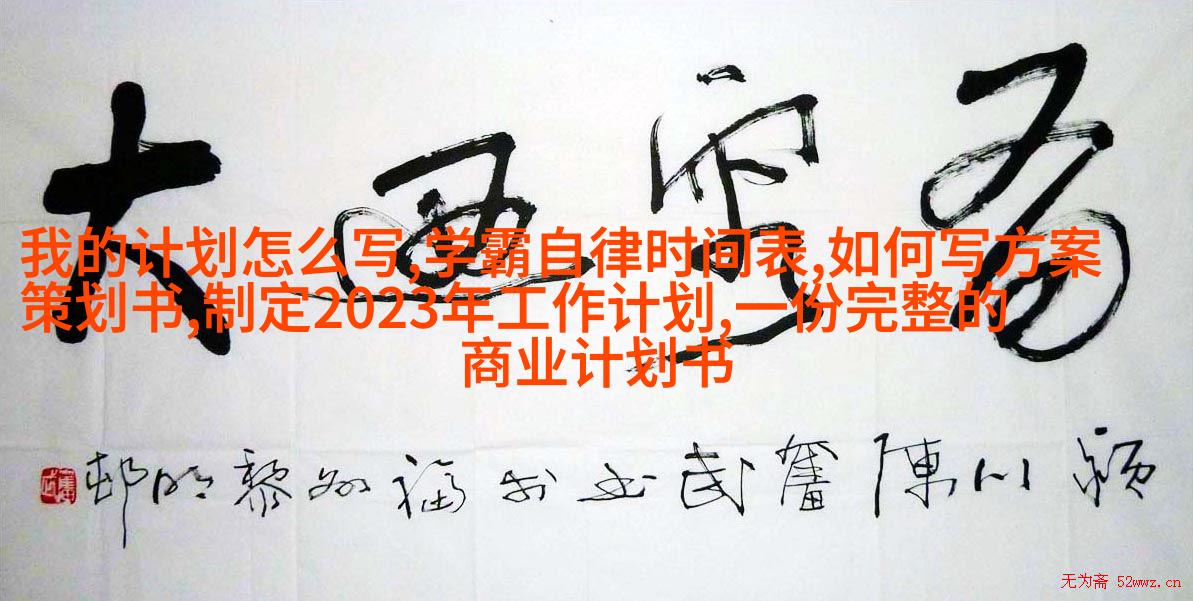 大
我的计划怎么写,学霸自律时间表,如何写方案
策划书,制定2023年工作计划,一份完整的
商业计划书
颍川陳奮武书于福州黎明邨
无为斋 52wwz.cn